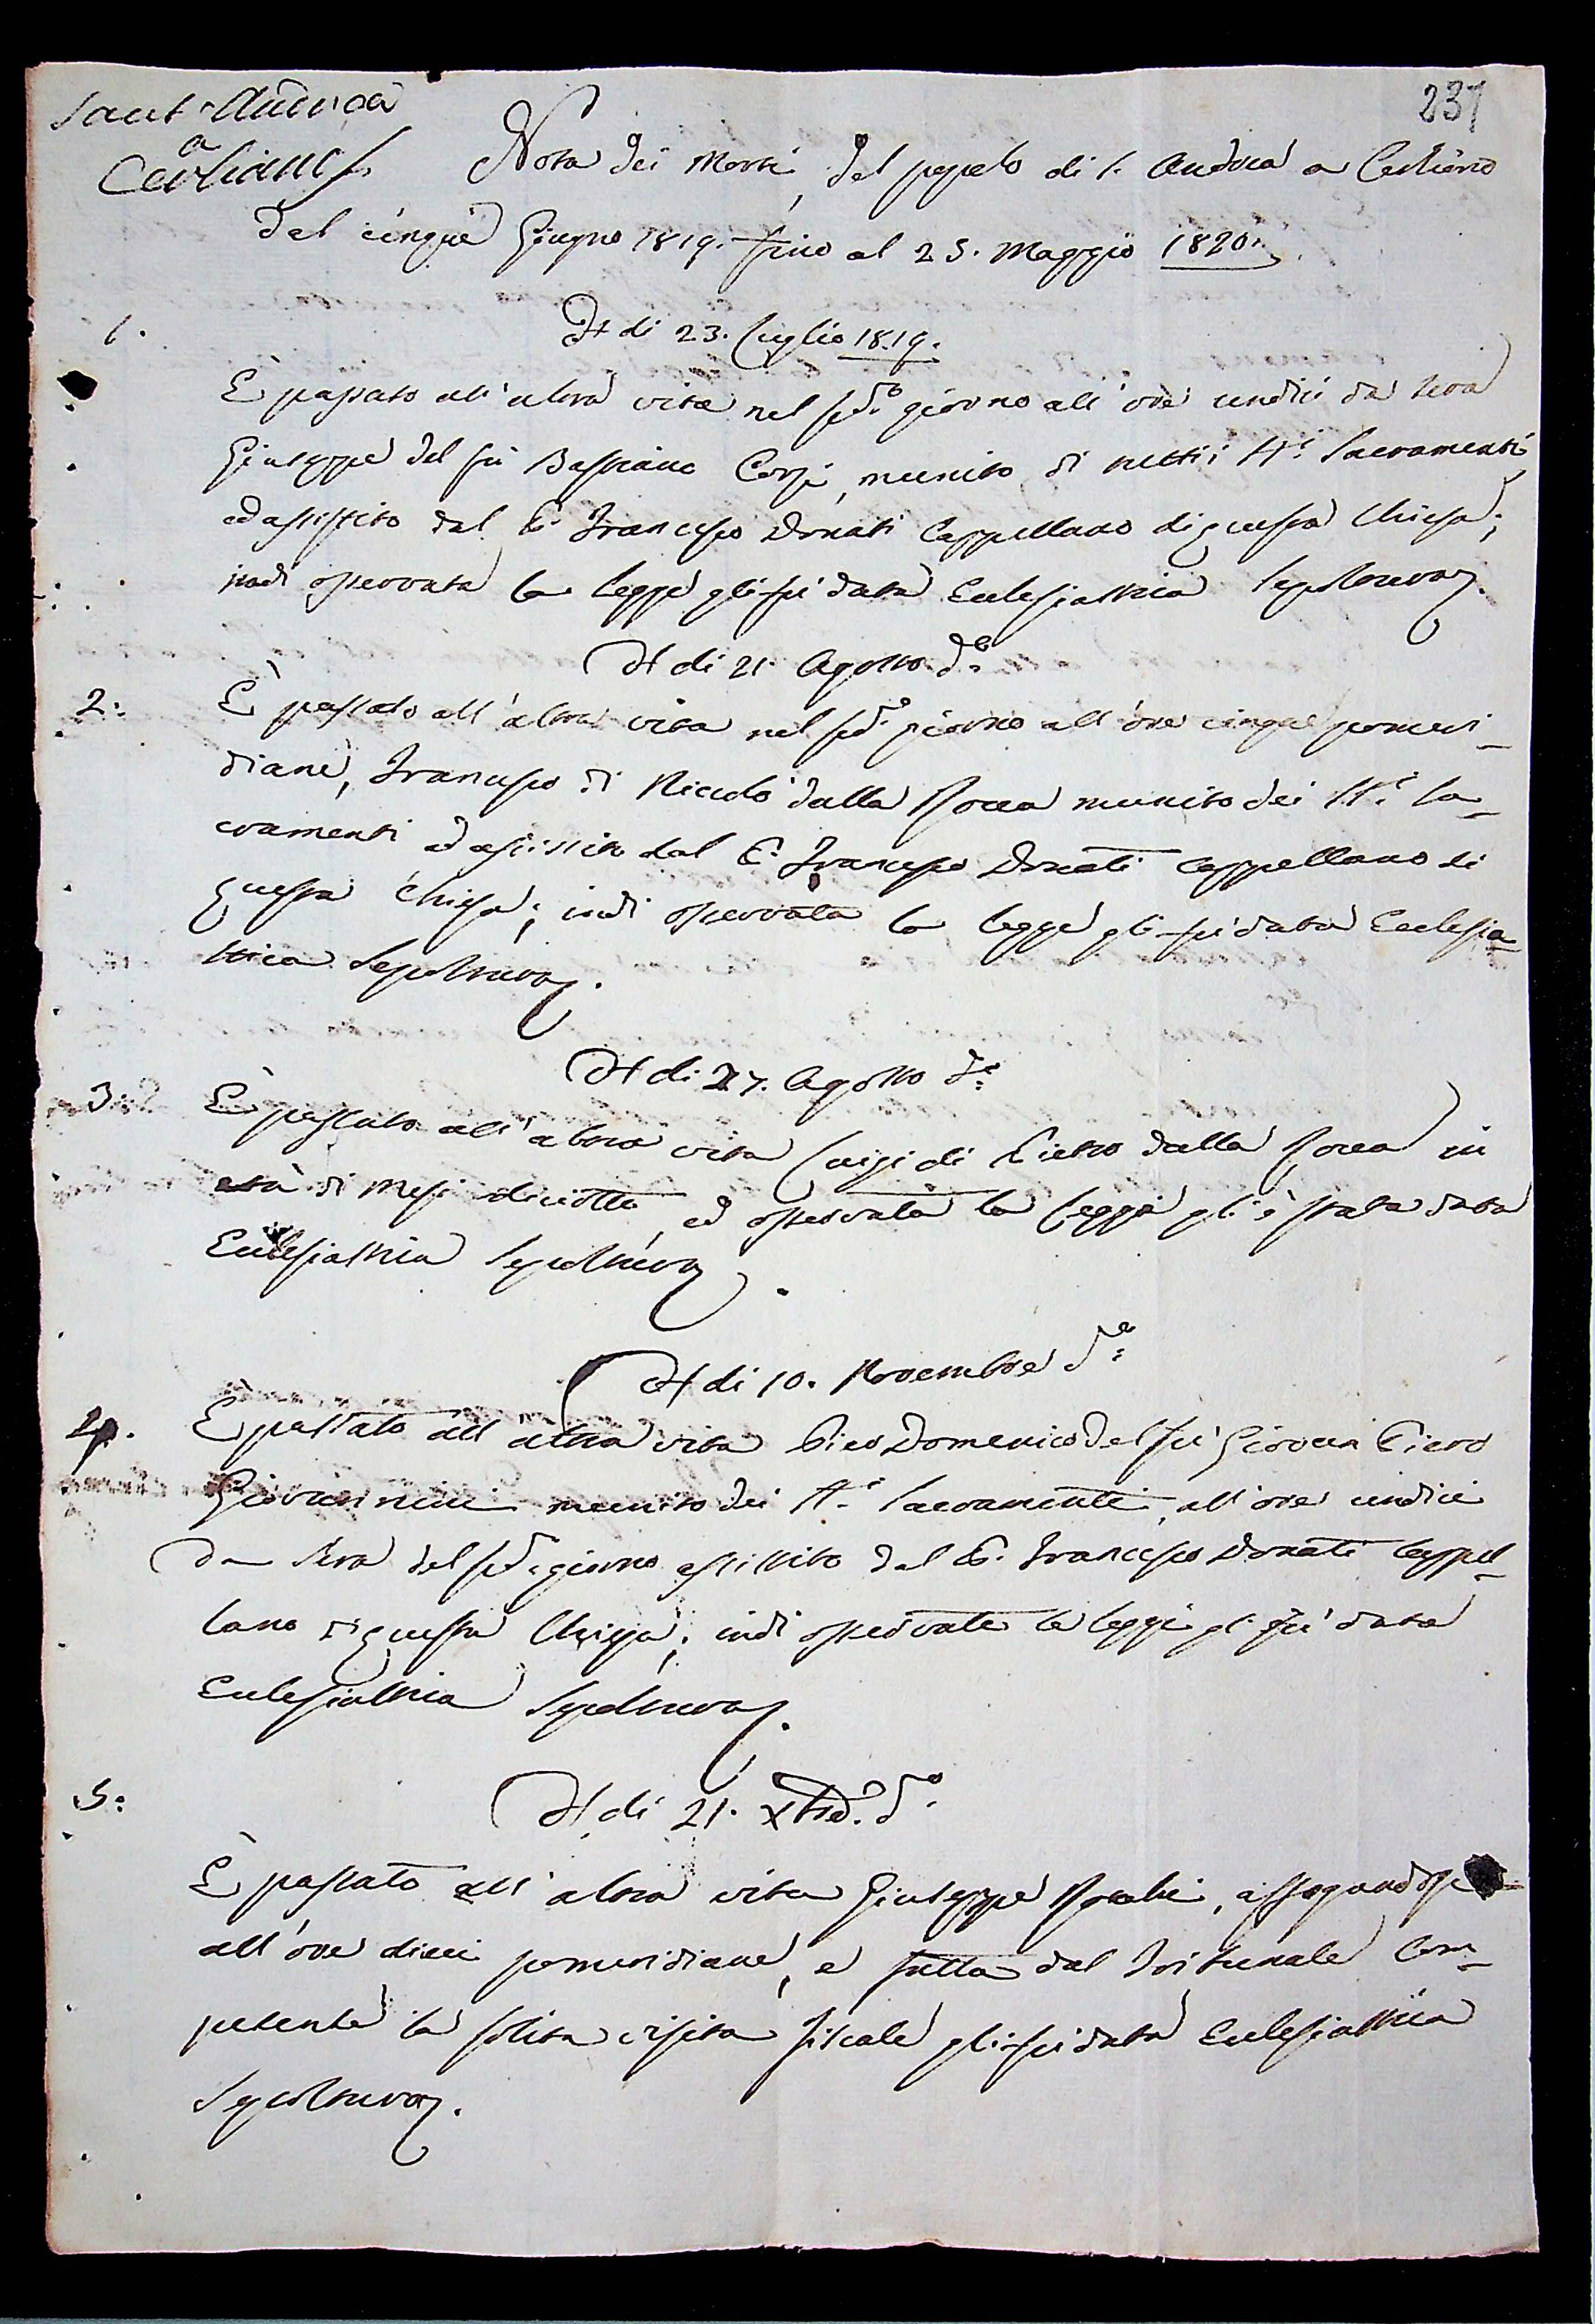 237
Sant'Andrea
a
Cerliano
Nota dei Morti del popolo di S. Andrea a Cerliano
dal cinque Giugno 1819. fino al 25. Maggio 1820.
1.
A di 23. Luglio 1819.
È passato all'altra vita nel sud.º giorno all'ore undici da sera
Giuseppe del fù Bastiano Corsi, munito di tutti i SS.i Sacramenti,
ed assistito dal P. Francesco Donati Cappellano di questa Chiesa;
indi osservata la legge gli fù data Eclesiastica Sepoltura.
A di 21. Agosto d.º
2.
È passato all'altra vita nel sud.º giorno all'ore cinque pomeri-
diane, Francesco di Nicolò dalla Rocca munito dei SS.i Sa-
cramenti ed assistito dal P. Francesco Donati Cappellano di
questa Chiesa; indi osservata la legge gli fù data Ecclesia-
stica Sepoltura.
A di 27. Agosto d.º
3.
È passato all'altra vita Luigi di Pietro dalla Rocca in
età di Mesi diciotto, ed osservata la legge gli è stata data
Eclesiastica Sepoltura.
A di 10. Novembre d.º
4.
È passato all'altra vita Pier Domenico del fù Giovan Piero
Giovannini munito dei SS.i Sacramenti, all'ore undici
da sera del sud.º giorno assistito dal P. Francesco Donati Cappel-
lano di questa Chiesa; indi osservate le leggi gli fù data
Eclesiastica Sepoltura.
5.
A di 21. Xbre. d.º
È passato all'altra vita Giuseppe affogandosi
all'ore dieci pomeridiane, e fatta dal Tribunale Com-
petente la solita visita fiscale gli fù data Eclesiastica
Sepoltura.